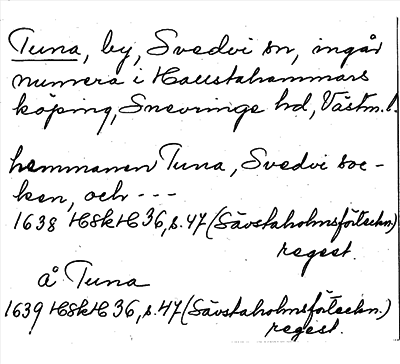 Tuna, by, Svedvi sn, ingår
numera i Hallstahammars
köping, Snevringe hd, Västm. l.
hemmanen Tuna, Svedvi soc-
ken, och ---
1638 HSkH 36, s. 47 (Sävstaholmsförteckn.)
regest.
å Tuna
1639 HSkH 36, s. 47 (Sävstaholmsförteckn.)
regest.